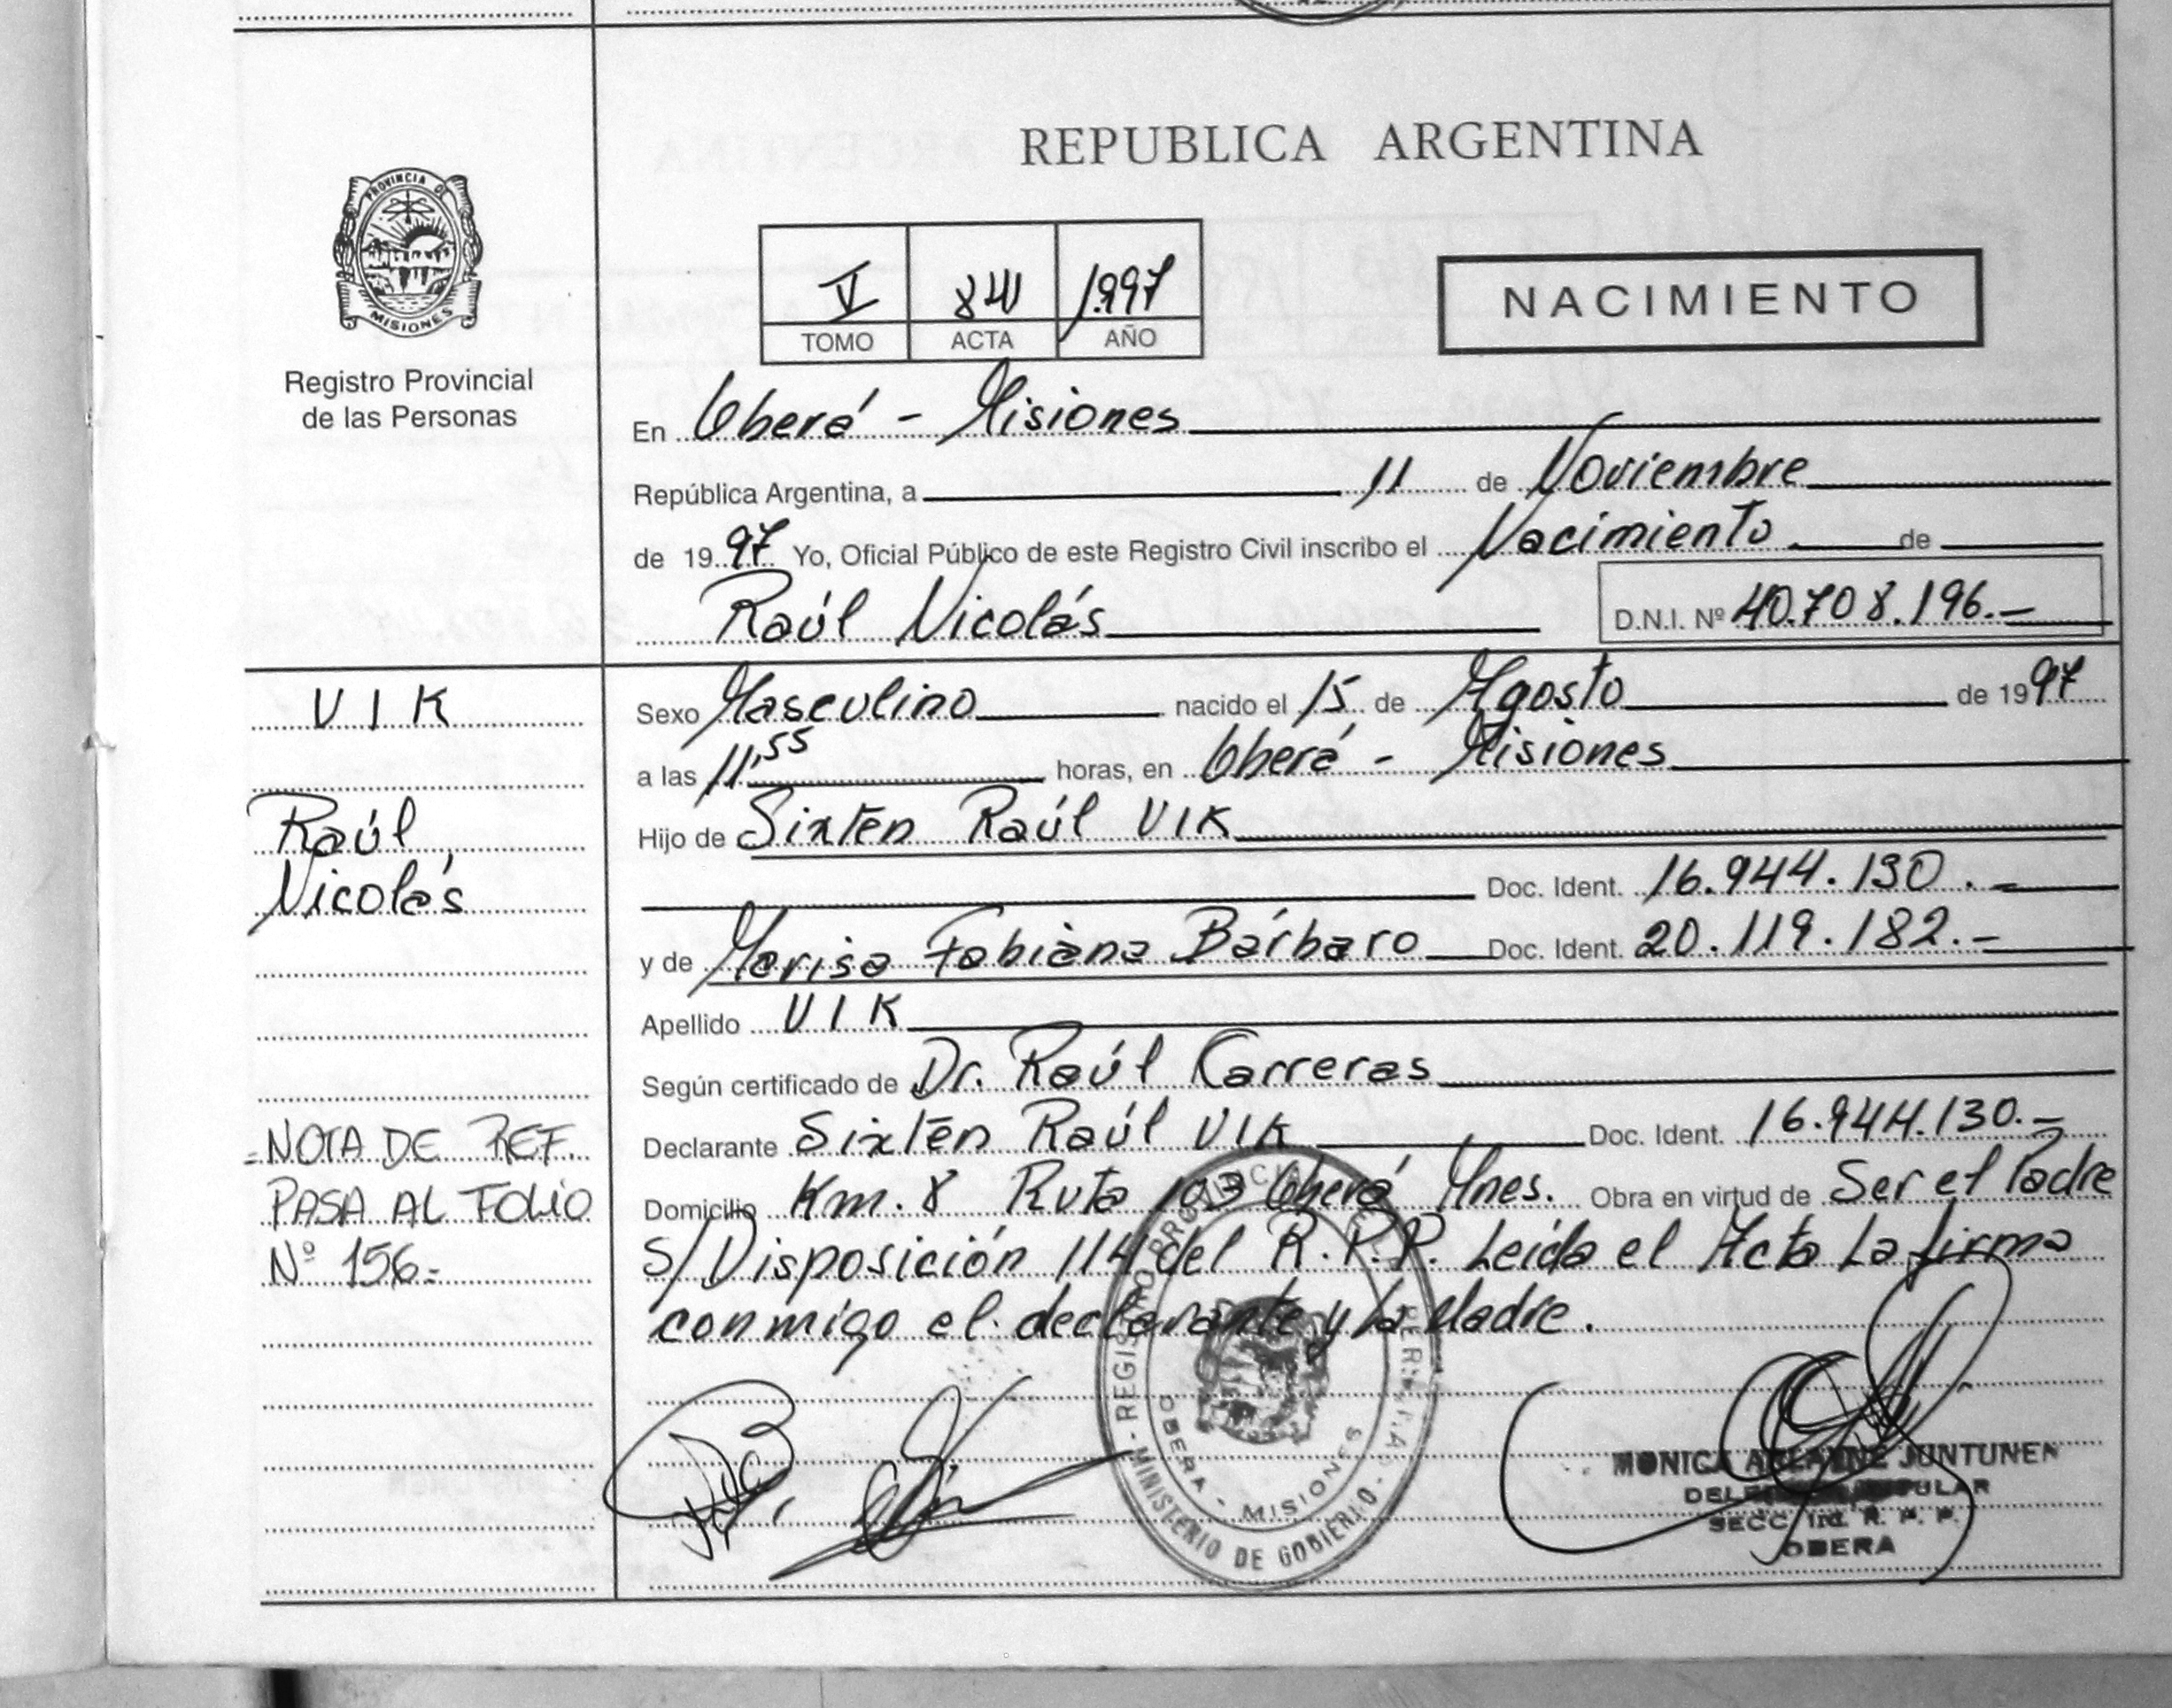 REPUBLICA ARGENTINA
PROVINCIA DE
MISIONES
Registro Provincial
de las Personas
V 841 1997
TOMO ACTA AÑO
NACIMIENTO
En Oberá - Misiones
República Argentina, a 11 de Noviembre
de 1997 Yo, Oficial Público de este Registro Civil inscribo el Nacimiento de
Raúl Nicolás D.N.I. Nº 40.708.196.-
VIK
Raúl
Nicolás
Sexo Masculino nacido el 15 de Agosto de 1997
a las 11,55 horas, en Oberá - Misiones
Hijo de Sixten Raúl VIK
Doc. Ident. 16.944.130.-
y de Marisa Fabiana Bárbaro Doc. Ident. 20.119.182.-
Apellido VIK
Según certificado de Dr. Raúl Carreras
Declarante Sixten Raúl VIK Doc. Ident. 16.944.130.-
Domicilio Km. 8 Ruta 103 Oberá Mnes. Obra en virtud de Ser el Padre
S/Disposición 114 del R.P.P. Leída el Acta La firma
conmigo el declarante y la Madre.
=NOTA DE REF.
PASA AL FOLIO
Nº 156-
OBERA - MISIONES
- MINISTERIO DE GOBIERNO -
MONICA JUNTUNEN
SECC. R. P. P.
OBERA